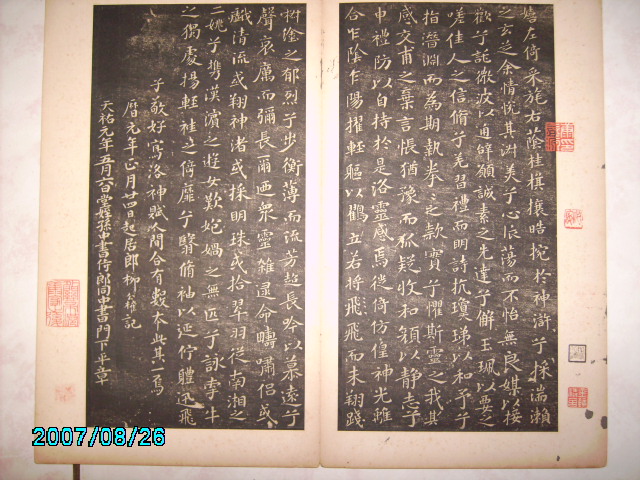 嬉左倚采旄右蔭桂旗攘皓捥於神滸兮採湍瀨
之玄芝余情悅其淑美兮心振蕩而不怡無良媒以接
歡兮託微波以通辭願誠素之先達兮解玉珮以要之
嗟佳人之信脩兮羌習禮而明詩抗瓊珶以和予兮
指潛淵而為期執拳拳之款實兮懼斯靈之我欺
感交甫之棄言悵猶豫而狐疑收和顏以靜志兮
申禮防以自持於是洛靈感焉徙倚仿偟神光離
合乍陰乍陽擢輕軀以鶴立若將飛飛而未翔踐
椒塗之郁烈兮步衡薄而流芳超長吟以慕遠兮
聲哀厲而彌長爾迺眾靈雜遝命疇嘯侶或
戲清流或翔神渚或採明珠或拾翠羽從南湘之
二姚兮攜漢濱之遊女歎匏媧之無匹兮詠牽牛
之獨處揚輕袿之倚靡兮翳脩袖以延佇體迅飛
子敬好寫洛神賦人間合有數本此其一焉
曆元年正月廿四日起居郎柳公權記
天祐元年五月六日堂姪孫中書侍郎同中書門下平章
2007/08/26